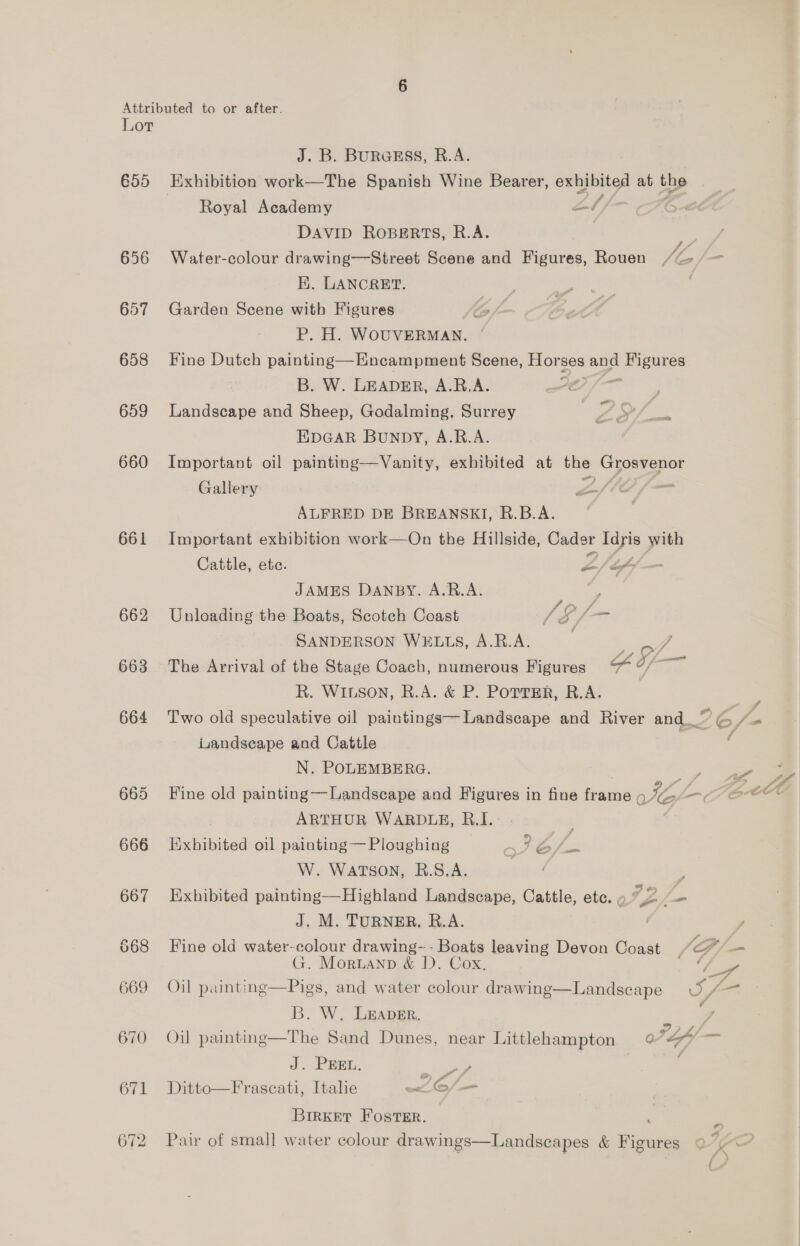 6
Attributed to or after.
Lot
J. B. BURGESS, R.A.
655 Exhibition work—The Spanish Wine Bearer, exhibited at the
Royal Academy
DAVID ROBERTS, R.A.
656 Water-colour drawing—Street Scene and Figures, Rouen
E. LANCRET.
657 Garden Scene with Figures
P. H. WOUVERMAN.
658 Fine Dutch painting—Encampment Scene, Horses and Figures
B. W. LEADER, A.R.A.
659 Landscape and Sheep, Godalming, Surrey
EDGAR BUNDY, A.R.A.
660 Important oil painting—Vanity, exhibited at the Grosvenor
Gallery
ALFRED DE BREANSKI, R.B.A.
661 Important exhibition work—On the Hillside, Cader Idris with
Cattle, etc.
JAMES DANBY. A.R.A.
662 Unloading the Boats, Scotch Coast 18/-
SANDERSON WELLS, A.R.A.
663 The Arrival of the Stage Coach, numerous Figures
R. WILSON, R.A. & P. POTTER, R.A.
664 Two old speculative oil paintings—Landscape and River and
Landscape and Cattle
N. POLEMBERG.
665 Fine old painting—Landscape and Figures in fine frame
ARTHUR WARDLE, R.I.
666 Exhibited oil painting—Ploughing
W. WATSON, R.S.A.
667 Exhibited painting—Highland Landscape, Cattle, etc.
J. M. TURNER, R.A.
668 Fine old water-colour drawing-- Boats leaving Devon Coast
G. MORLAND & D. COX.
669 Oil painting—Pigs, and water colour drawing—Landscape
B. W. LEADER.
670 Oil painting—The Sand Dunes, near Littlehampton
J. PEEL.
671 Ditto—Frascati, Italie
BIRKET FOSTER.
672 Pair of small water colour drawings—Landscapes & Figures